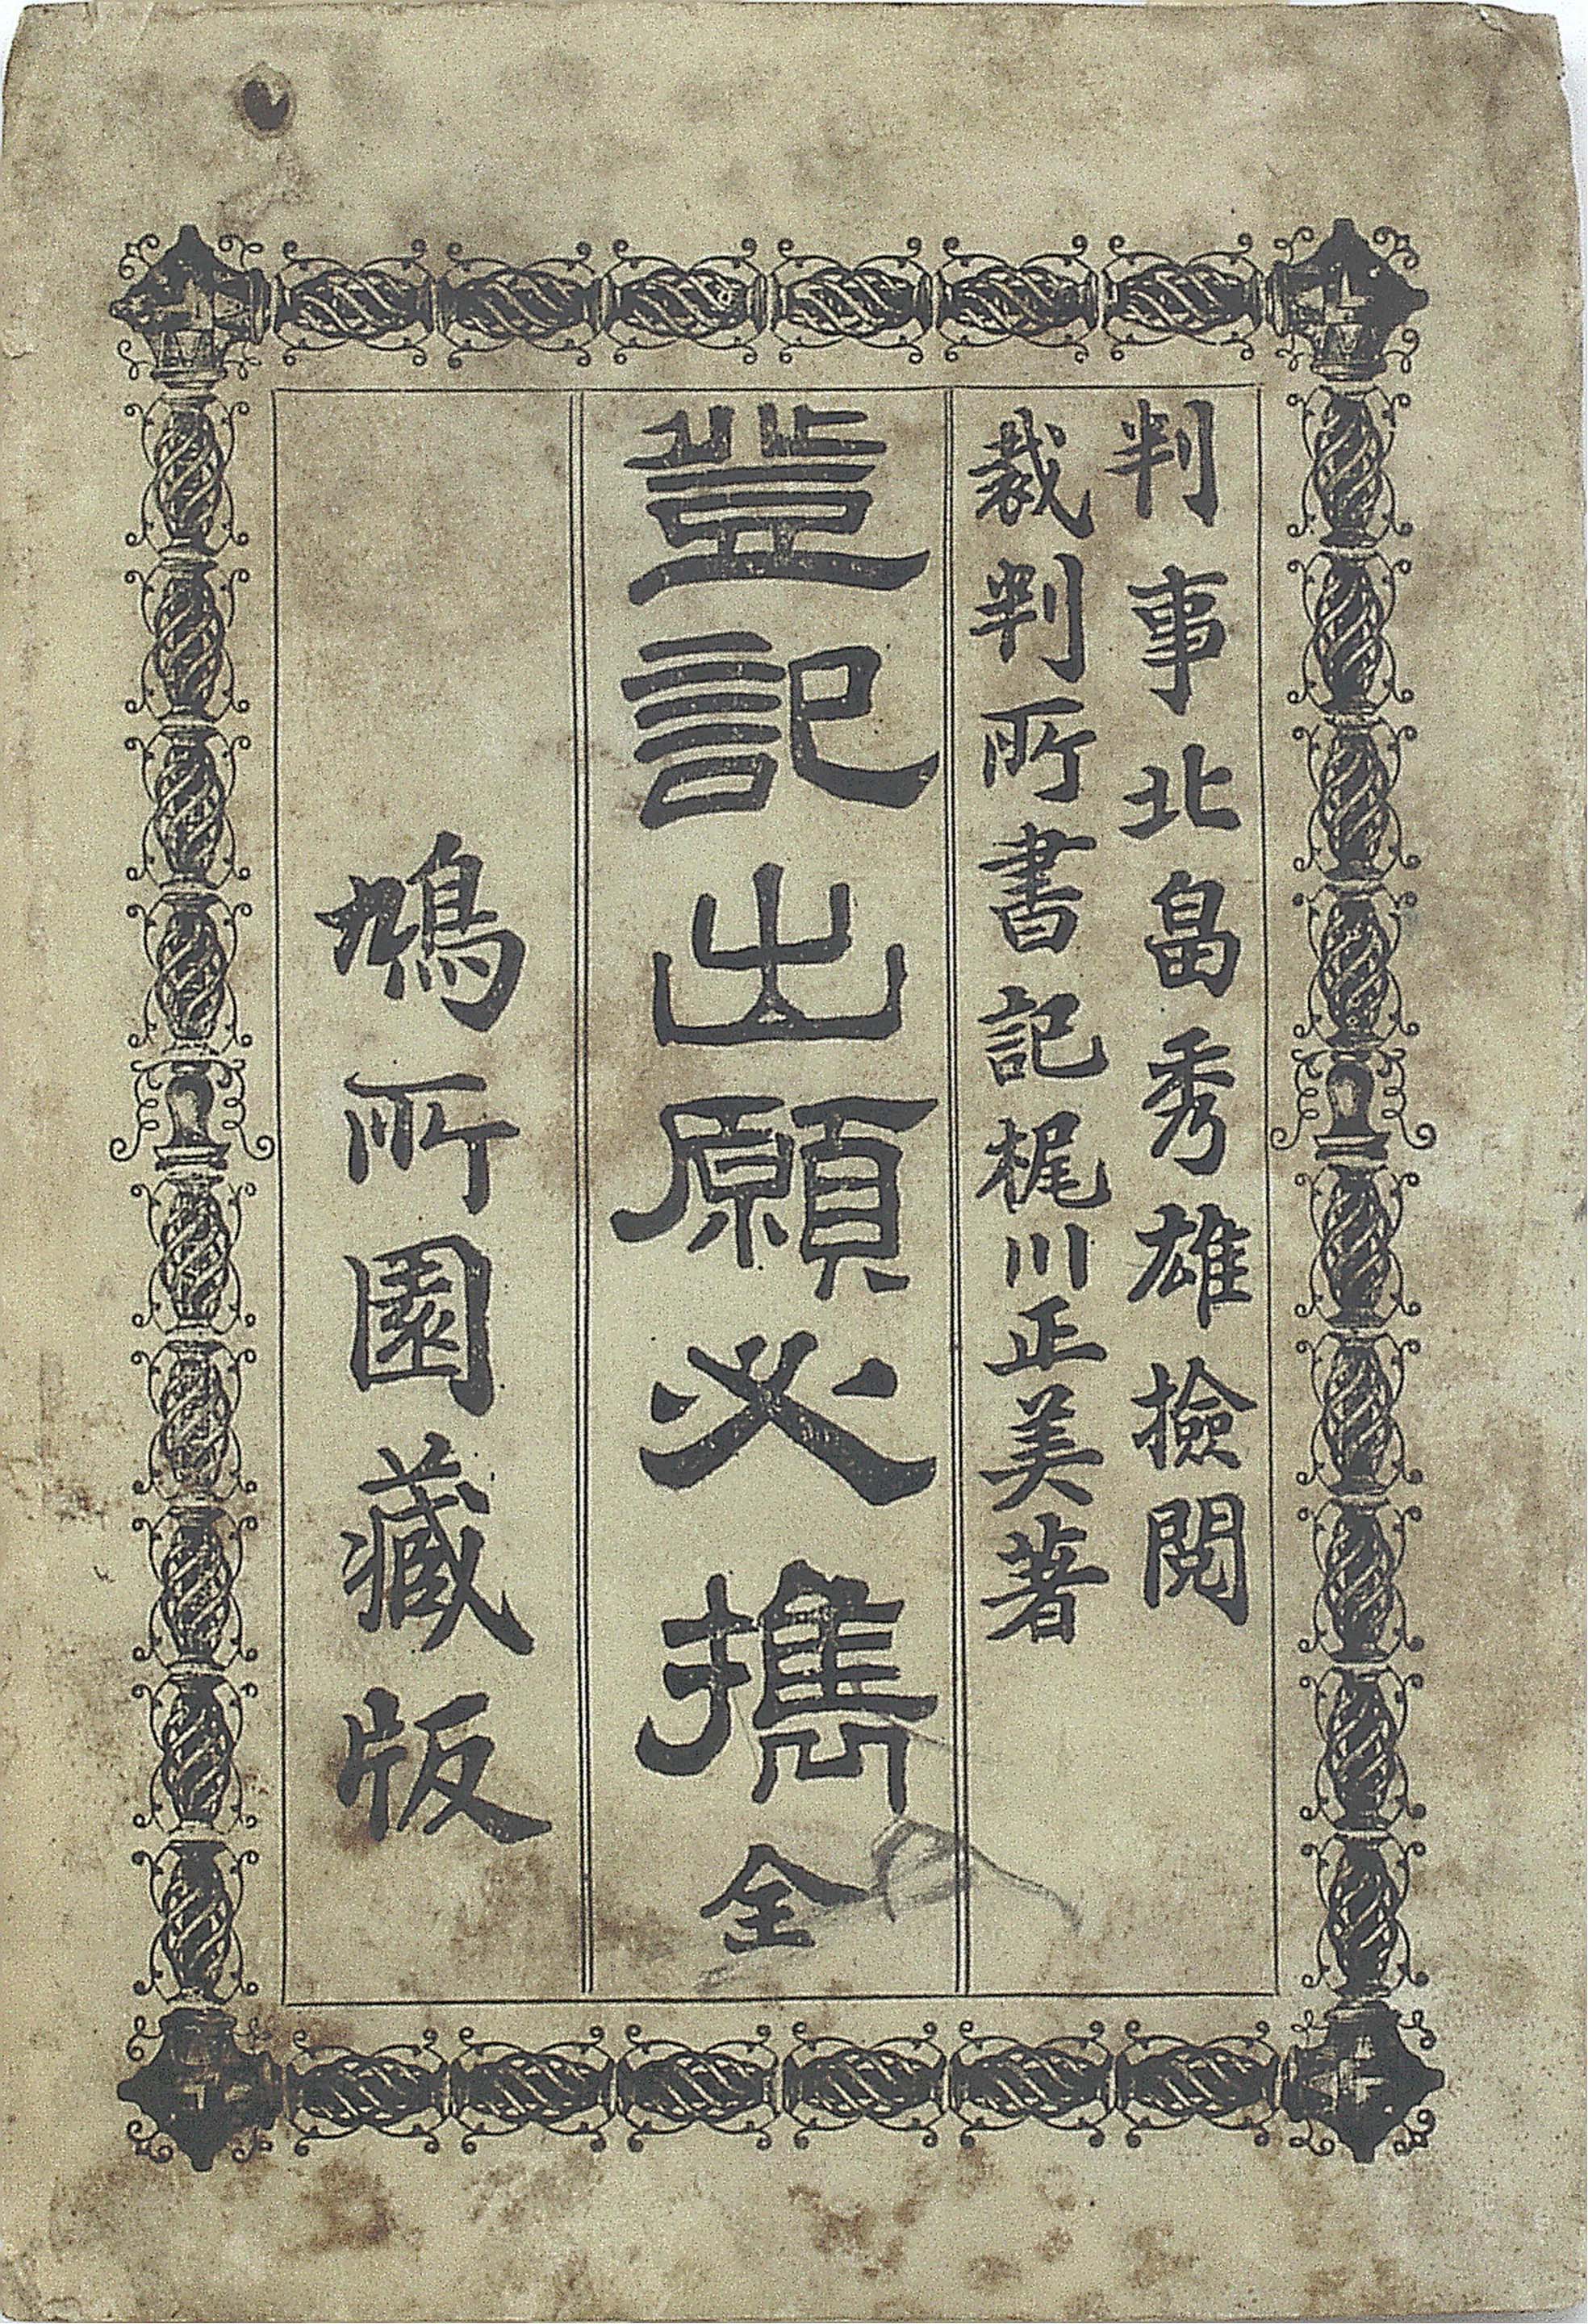 判事北畠秀雄撿閲
裁判所書記梶川正美著
登記出願必携 全
鳩所園藏版